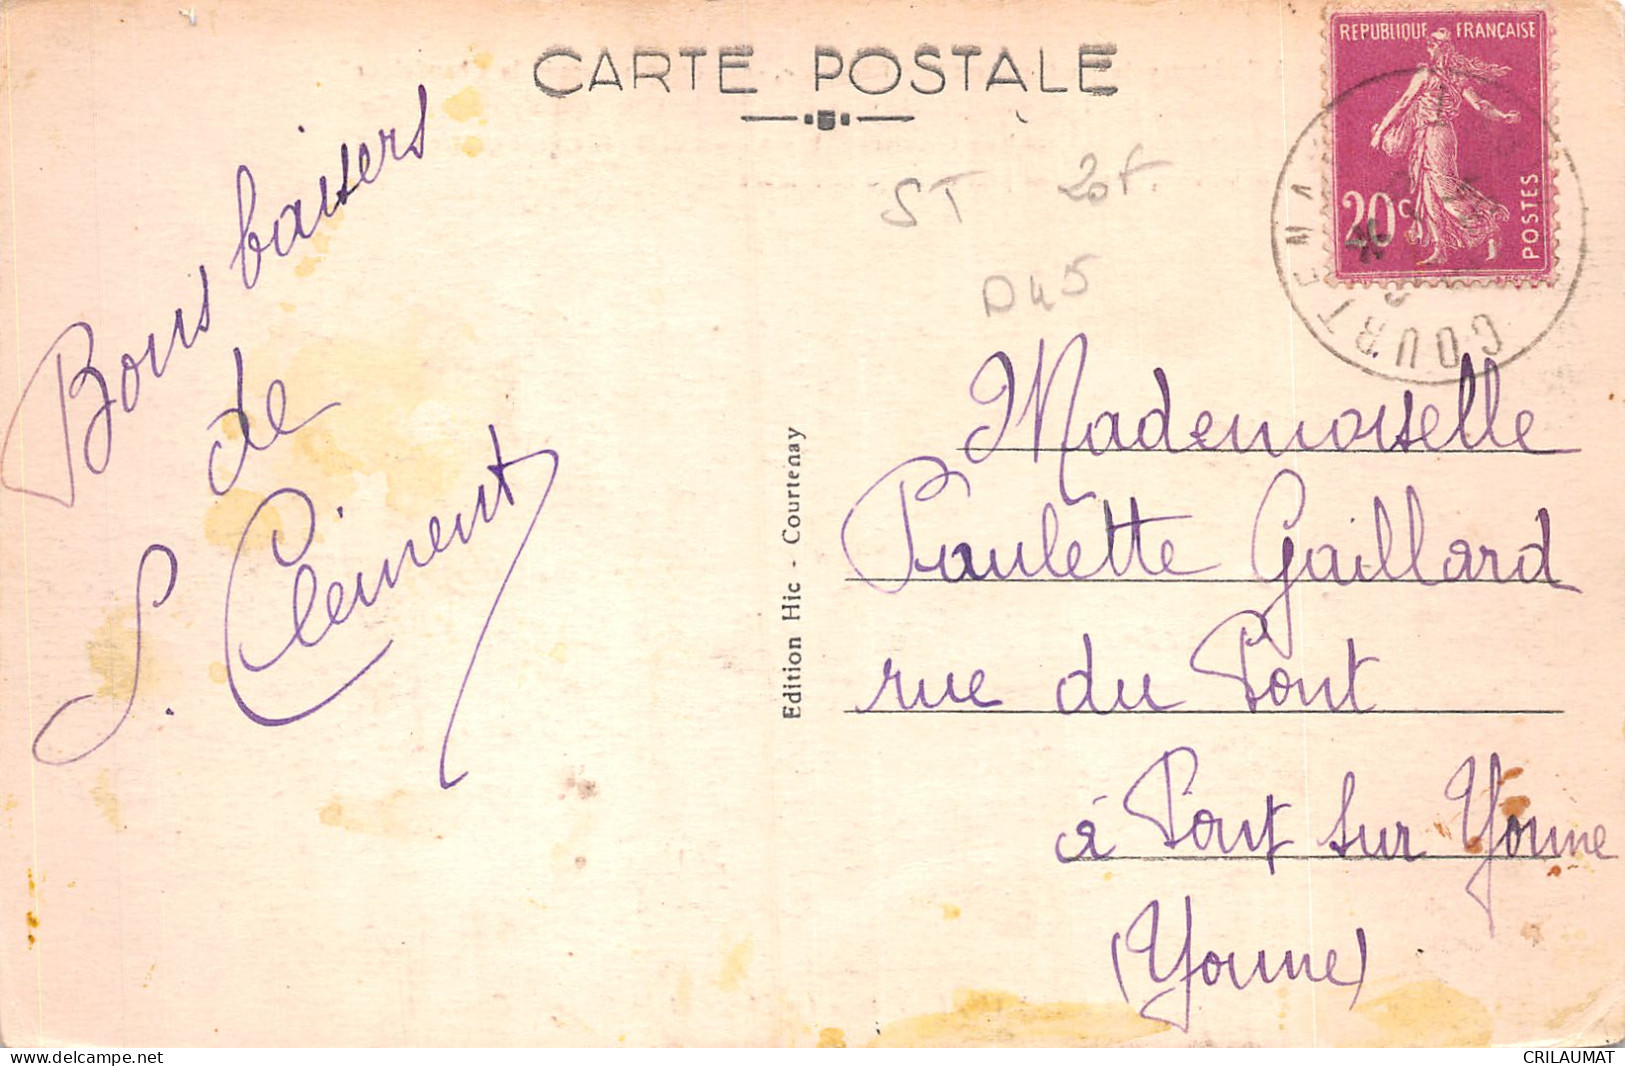 CARTE POSTALE
REPUBLIQUE FRANÇAISE
20c
POSTES
COURTENA
ST 20f.
D45
Bons baisers
de
S. Clément
Edition Hic - Courtenay
Mademoiselle
Paulette Gaillard
rue du Pont
à Pont sur Yonne
(Yonne)
www.delcampe.net
CRILAUMAT